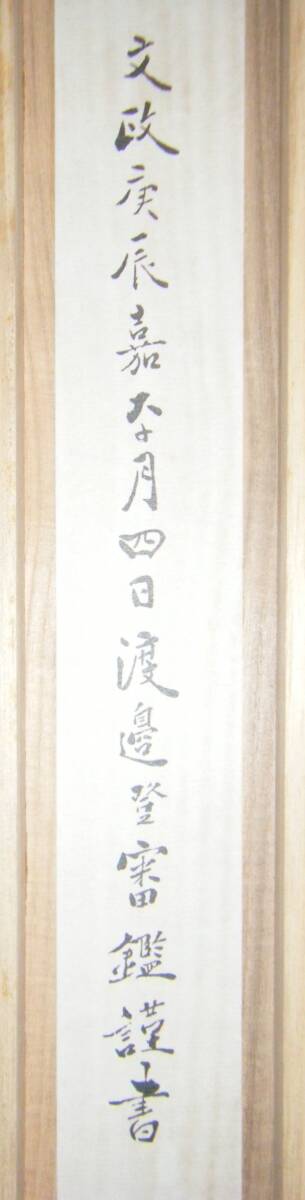 文政庚辰嘉平月四日渡邉登審鑑謹書